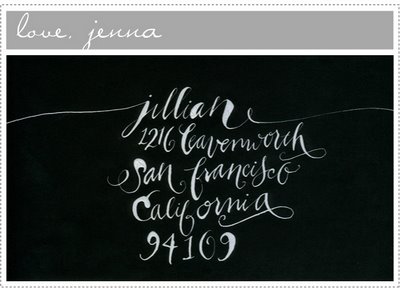 love, jenna
jillian
1216 Leavenworth
San Francisco
California
94109